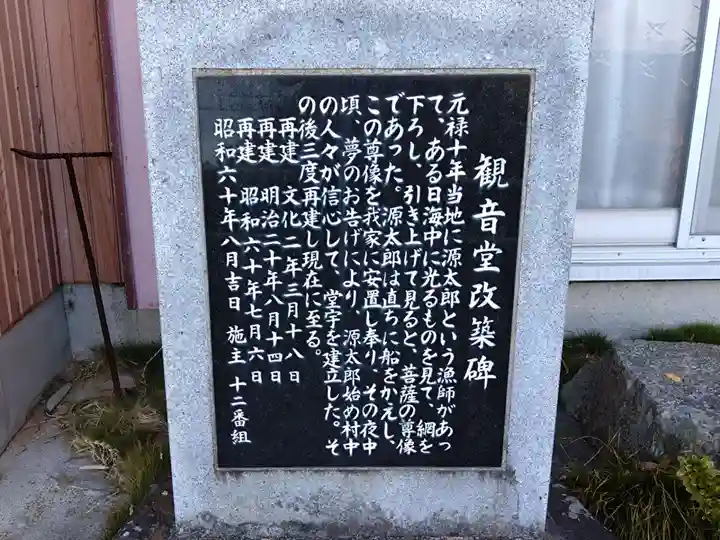 観音堂改築碑
元禄十年当地に源太郎という漁師があっ
て、ある日海中に光るものを見て、網を
下ろし、引き上げて見ると、菩薩の尊像
であった。源太郎は直ちに船をかえし、
この尊像を我家に安置し奉り、その夜中
頃、夢のお告げにより、源太郎始め村中
の人々が信心して、堂宇を建立した。そ
の後三度再建し現在に至る。
再建 文化二年三月十八日
再建 明治二十年八月十四日
再建 昭和六十年七月六日
昭和六十年八月吉日 施主 十二番組